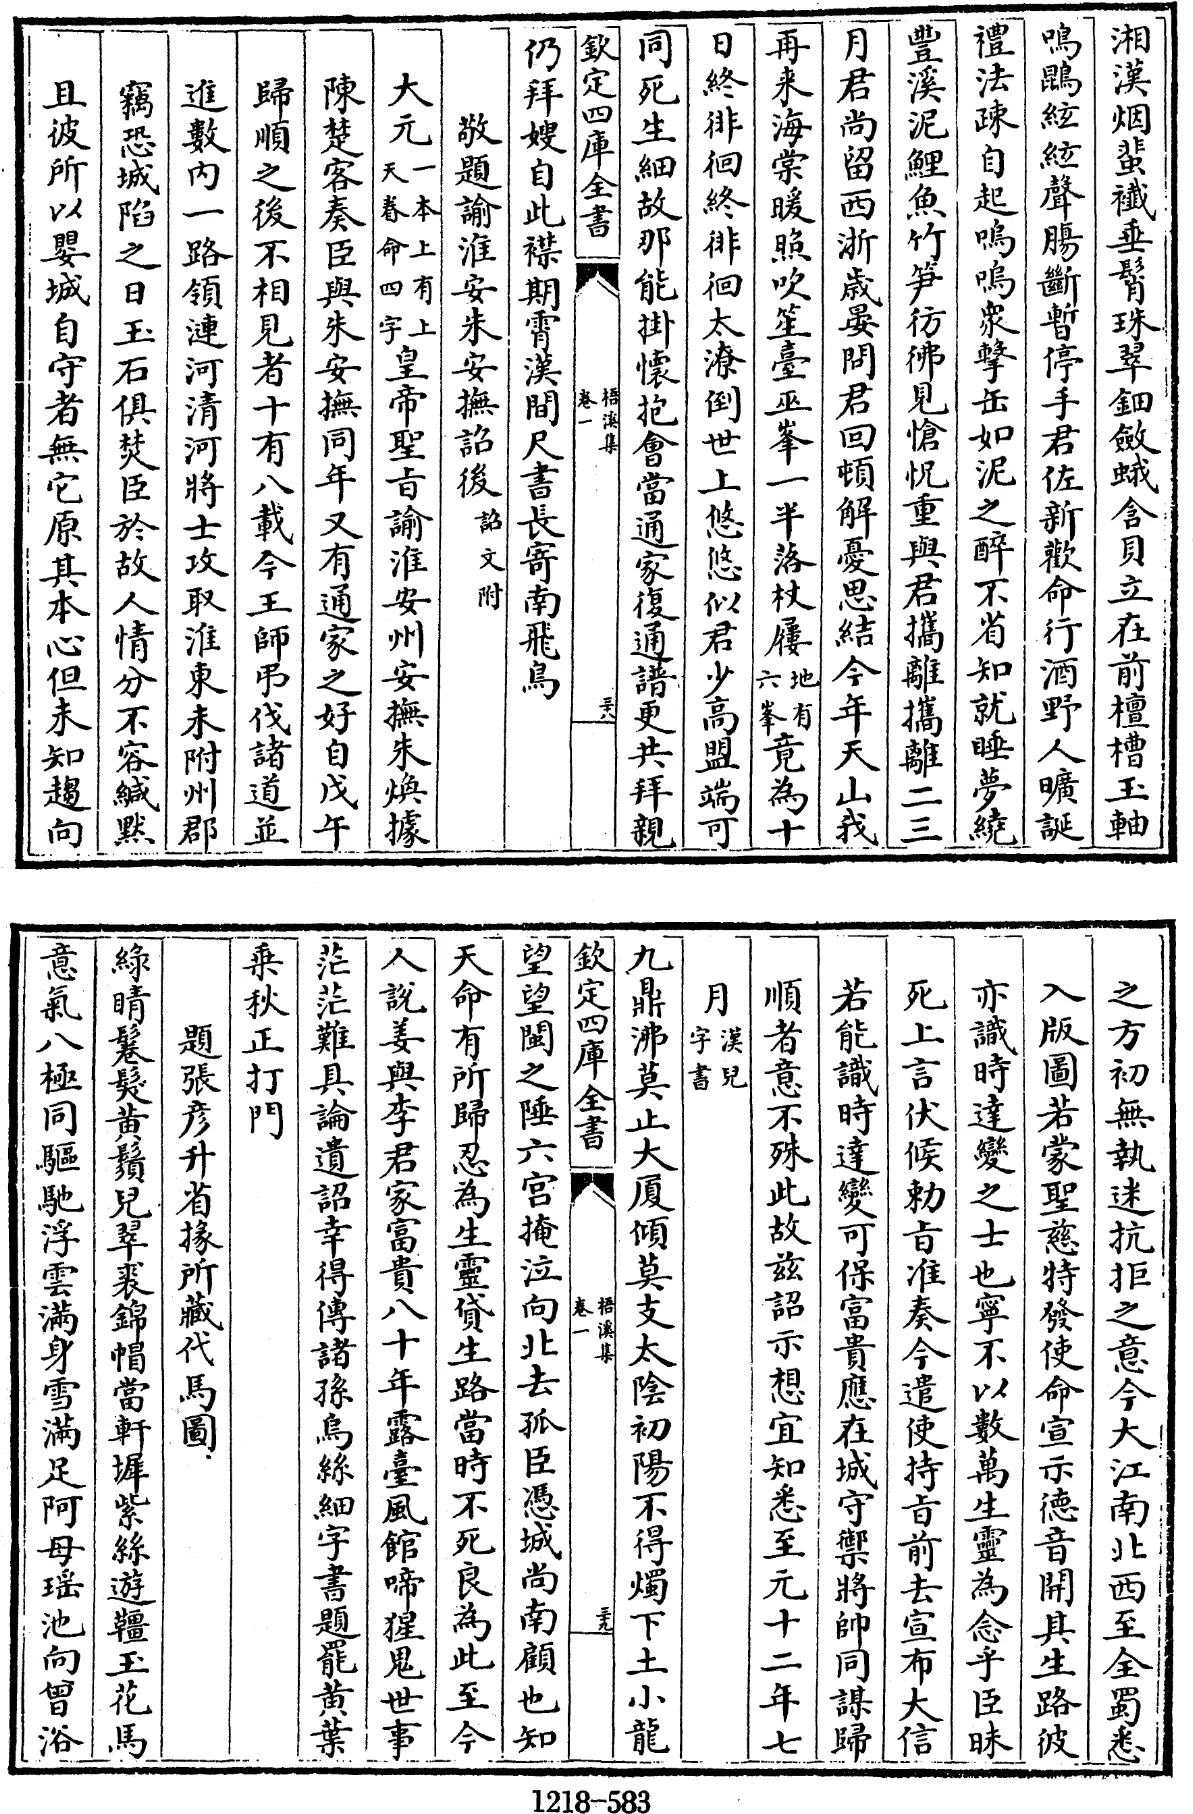 湘漢烟蜚襳垂髾珠翠鈿斂蛾含貝立在前檀槽玉軸
鳴鵾絃絃聲腸斷暫停手君佐新歡命行酒野人曠誕
禮法疎自起嗚嗚衆擊缶如泥之醉不省知就睡夢繞
豐溪泥鯉魚竹笋彷彿見愴怳重與君攜離攜離二三
月君尚留西浙歳晏問君回頓解憂思結今年天山我
再来海棠暖照吹笙臺巫峯一半落杖屨地有六峯竟為十
日終徘徊終徘徊太潦倒世上悠悠似君少高盟端可
同死生細故那能掛懷抱會當通家復通譜更共拜親
欽定四庫全書
梧溪集
卷一
三十八
仍拜嫂自此襟期霄漢間尺書長寄南飛鳥
敬題諭淮安朱安撫詔後詔文附
大元一本上有上天眷命四字皇帝聖旨諭淮安州安撫朱煥據
陳楚客奏臣與朱安撫同年又有通家之好自戊午
歸順之後不相見者十有八載今王師弔伐諸道並
進數内一路領漣河清河將士攻取淮東未附州郡
竊恐城陷之日玉石俱焚臣於故人情分不容緘默
且彼所以嬰城自守者無它原其本心但未知趨向
之方初無執迷抗拒之意今大江南北西至全蜀悉
入版圖若蒙聖慈特發使命宣示德音開其生路彼
亦識時達變之士也寧不以數萬生靈為念乎臣昧
死上言伏候勅旨准奏今遣使持旨前去宣布大信
若能識時達變可保富貴應在城守禦將帥同謀歸
順者意不殊此故兹詔示想宜知悉至元十二年七
月漢兒字書
九鼎沸莫止大厦傾莫支太陰初陽不得燭下土小龍
欽定四庫全書
梧溪集
卷一
三十九
望望閩之陲六宮掩泣向北去孤臣憑城尚南顧也知
天命有所歸忍為生靈貸生路當時不死良為此至今
人說姜與李君家富貴八十年露臺風館啼猩鬼世事
茫茫難具論遺詔幸得傳諸孫烏絲細字書題罷黄葉
乗秋正打門
題張彦升省掾所藏代馬圖
綠晴鬈髮黄鬚兒翠裘錦帽當軒墀紫絲遊韁玉花馬
意氣八極同驅馳浮雲滿身雪滿足阿母瑶池向曾浴
1218-583